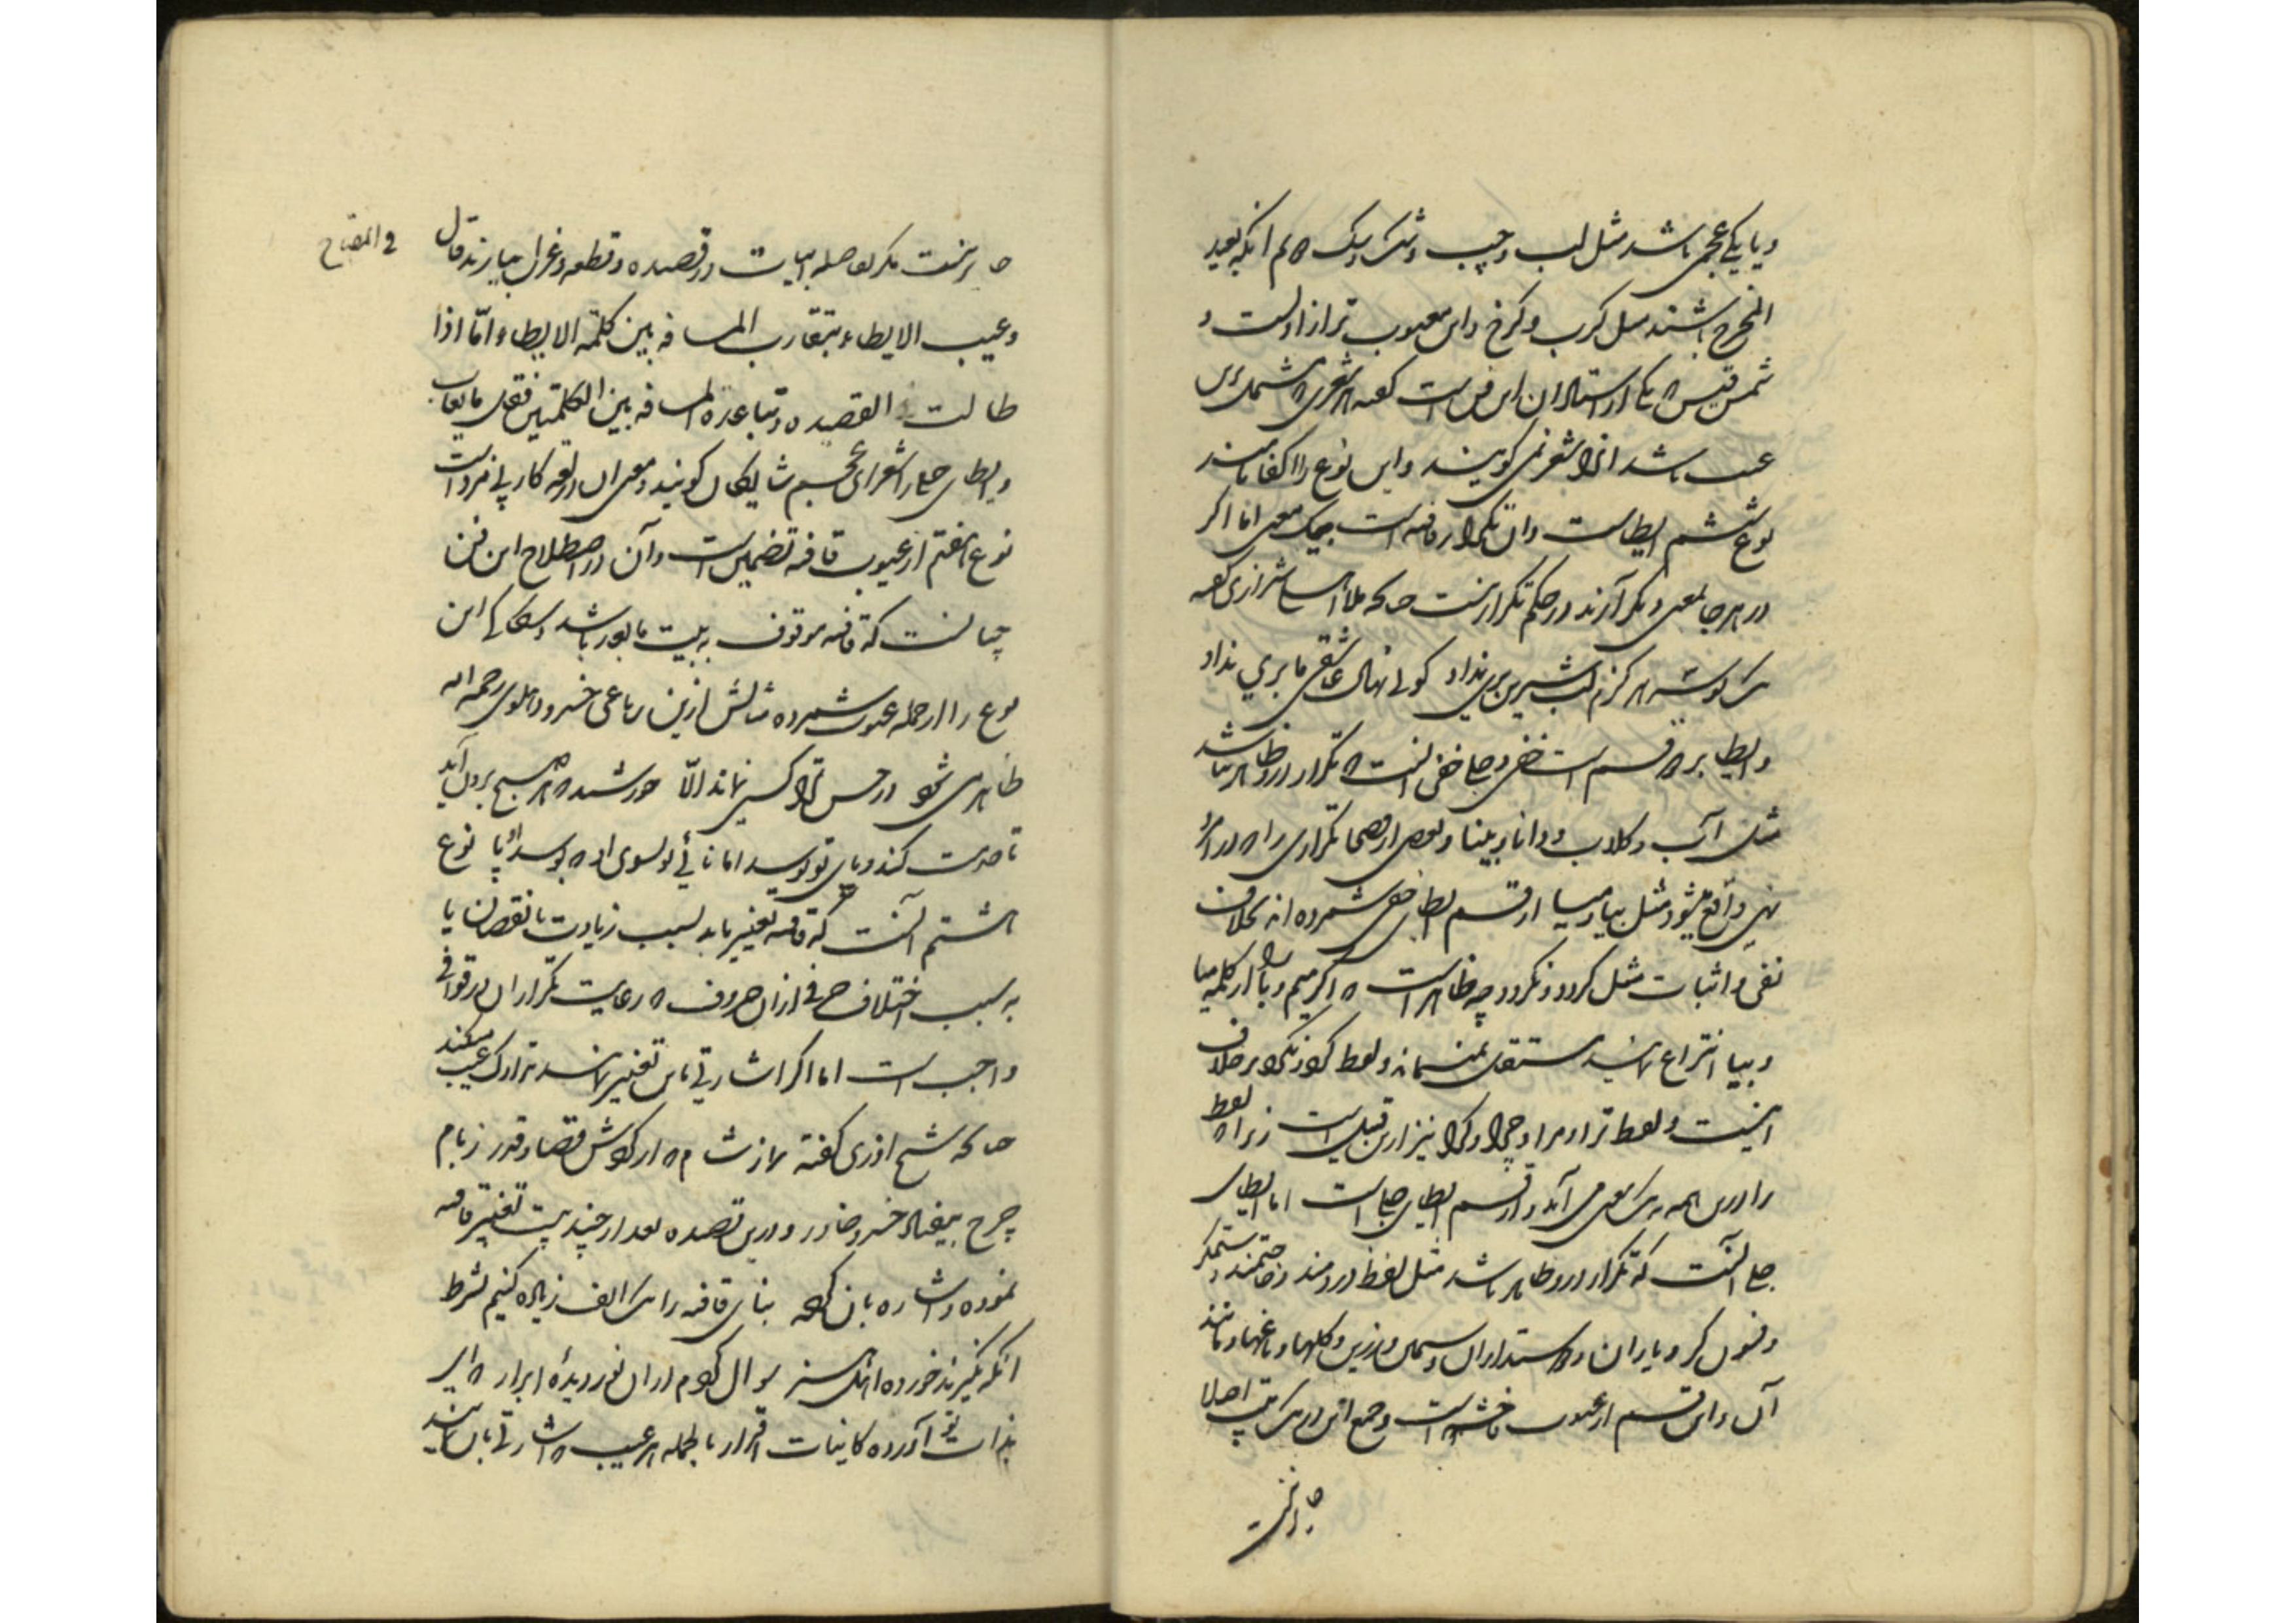 و یا یکی عجمی باشد مثل لب و چپ و شک و سک دوم آنکه بعید
المخرج باشند مثل کرب و کرخ و این معیوب تر از اولست و
شمس قیس که یکی از استادان این فن است گفته هر شعری که مشتمل برین
عیب باشد آنرا شعر نمی گویند و این نوع را اکفا نامند
نوع ششم ایطاست و آن تکرار قافیه است بیک معنی اما اگر
در هر جا بمعنی دیگر آرند در حکم تکرار نیست چنانکه شیرازی گفته
هرگز لب شیرین بری نداد کوئی نهال عاشقی ما بری نداد
و ایطا بر دو قسم است خفی و جلی خفی آنست که تکرار درو ظاهر نباشد
مثل آب و کلاب و دانا و بینا و بعضی از فصحا تکراری را که در امر و
نهی واقع میشود مثل بیا و میا از قسم ایطای خفی شمرده اند بخلاف
نفی و اثبات مثل کرد و نکرد چه ظاهر است که اگر میم و با را از کلمه میا
و بیا انتزاع نمایند مستقل نمیماند و لفظ کرد و نکرد بر خلاف
اینست و لفظ ترا و مرا و چرا و کرا نیز ازین قبیل است زیرا که لفظ
را درین همه بیک معنی می آید و از قسم ایطای جلی است اما ایطای
جلی آنست که تکرار درو ظاهر باشد مثل لفظ دردمند و حاجتمند و ستمگر
و فسونگر و یاران و دوستداران و سیمین و زرین و گلها و باغها و مانند
آن و این قسم از عیوب فاحشه است و جمع این در یک بیت اصلا
جایز نیست
جایز نیست مگر بفاصله ابیات در قصیده و قطعه و غزل بیارند قال
فی المفتاح
و عیب الایطاء بتقارب المسافه بین کلمة الایطاء و اما اذا
طالت القصیده و تباعدة المسافه بین الکلمتین فقل ما یعاب
و ایطای جلی را شعرای عجم شایگان گویند و معنی آن در لغة کار بی مزد است
نوع هفتم از عیوب قافیه تضمین است و آن در اصطلاح این فن
چنانست که قافیه موقوف به بیت مابعد باشد و سکاکی این
نوع را از جمله عیوب شمرده مثالش ازین رباعی خسرو دهلوی رحمه الله
ظاهر می شود در حسن ترا کسی نماند الا خورشید که هر صبح برون آید
تا خدمت کند و پای تو بوسد اما نائی تو بسوی او که بوسد او پا نوع
هشتم آنست که قافیه تغییر یابد بسبب زیادت یا نقصان یا
به سبب اختلاف حرفی از آن حروف که رعایت تکرار آن در قوافی
واجب است اما اگر اشارتی باین تغییر نمایند تدارک عیب میکند
چنانکه شیخ آذری گفته نماز شام که از کردش قضا و قدر ز بام
چرخ بیفتاد خسرو خاور و درین قصیده بعد از چند بیت تغییر قافیه
نموده و اشاره بان کرده بنای قافیه را یک الف زیاده کنیم بشرط
آنکه نگیرند خورده اهل هنر سوال کردم از آن نور دیدهٔ ابرار که ای
بذات تو آورده کاینات اقرار بالجمله هر عیب که اشارتی بان نمایند